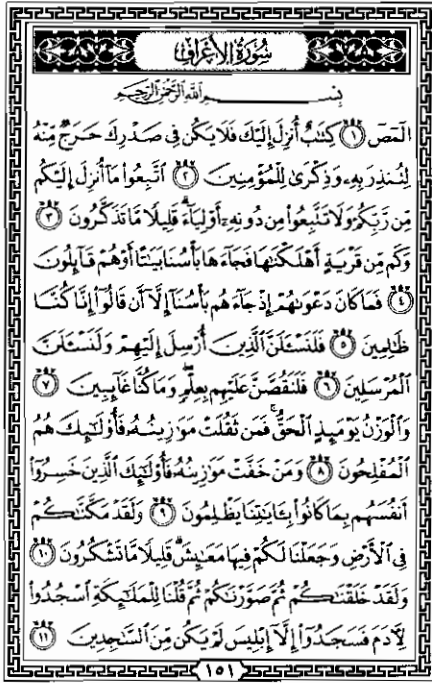 سُورَةُ الأَعْرَافِ
بِسْمِ اللَّهِ الرَّحْمَٰنِ الرَّحِيمِ
الٓمٓصٓ ١ كِتَٰبٌ أُنزِلَ إِلَيْكَ فَلَا يَكُن فِى صَدْرِكَ حَرَجٌ مِّنْهُ
لِتُنذِرَ بِهِۦ وَذِكْرَىٰ لِلْمُؤْمِنِينَ ٢ ٱتَّبِعُوا۟ مَآ أُنزِلَ إِلَيْكُم
مِّن رَّبِّكُمْ وَلَا تَتَّبِعُوا۟ مِن دُونِهِۦٓ أَوْلِيَآءَ ۗ قَلِيلًا مَّا تَذَكَّرُونَ ٣
وَكَم مِّن قَرْيَةٍ أَهْلَكْنَٰهَا فَجَآءَهَا بَأْسُنَا بَيَٰتًا أَوْ هُمْ قَآئِلُونَ
٤ فَمَا كَانَ دَعْوَىٰهُمْ إِذْ جَآءَهُم بَأْسُنَآ إِلَّآ أَن قَالُوٓا۟ إِنَّا كُنَّا
ظَٰلِمِينَ ٥ فَلَنَسْـَٔلَنَّ ٱلَّذِينَ أُرْسِلَ إِلَيْهِمْ وَلَنَسْـَٔلَنَّ
ٱلْمُرْسَلِينَ ٦ فَلَنَقُصَّنَّ عَلَيْهِم بِعِلْمٍ ۖ وَمَا كُنَّا غَآئِبِينَ ٧
وَٱلْوَزْنُ يَوْمَئِذٍ ٱلْحَقُّ ۚ فَمَن ثَقُلَتْ مَوَٰزِينُهُۥ فَأُو۟لَٰٓئِكَ هُمُ
ٱلْمُفْلِحُونَ ٨ وَمَنْ خَفَّتْ مَوَٰزِينُهُۥ فَأُو۟لَٰٓئِكَ ٱلَّذِينَ خَسِرُوٓا۟
أَنفُسَهُم بِمَا كَانُوا۟ بِـَٔايَٰتِنَا يَظْلِمُونَ ٩ وَلَقَدْ مَكَّنَّٰكُمْ
فِى ٱلْأَرْضِ وَجَعَلْنَا لَكُمْ فِيهَا مَعَٰيِشَ ۗ قَلِيلًا مَّا تَشْكُرُونَ ١٠
وَلَقَدْ خَلَقْنَٰكُمْ ثُمَّ صَوَّرْنَٰكُمْ ثُمَّ قُلْنَا لِلْمَلَٰٓئِكَةِ ٱسْجُدُوا۟
لِـَٔادَمَ فَسَجَدُوٓا۟ إِلَّآ إِبْلِيسَ لَمْ يَكُن مِّنَ ٱلسَّٰجِدِينَ ١١
١٥١